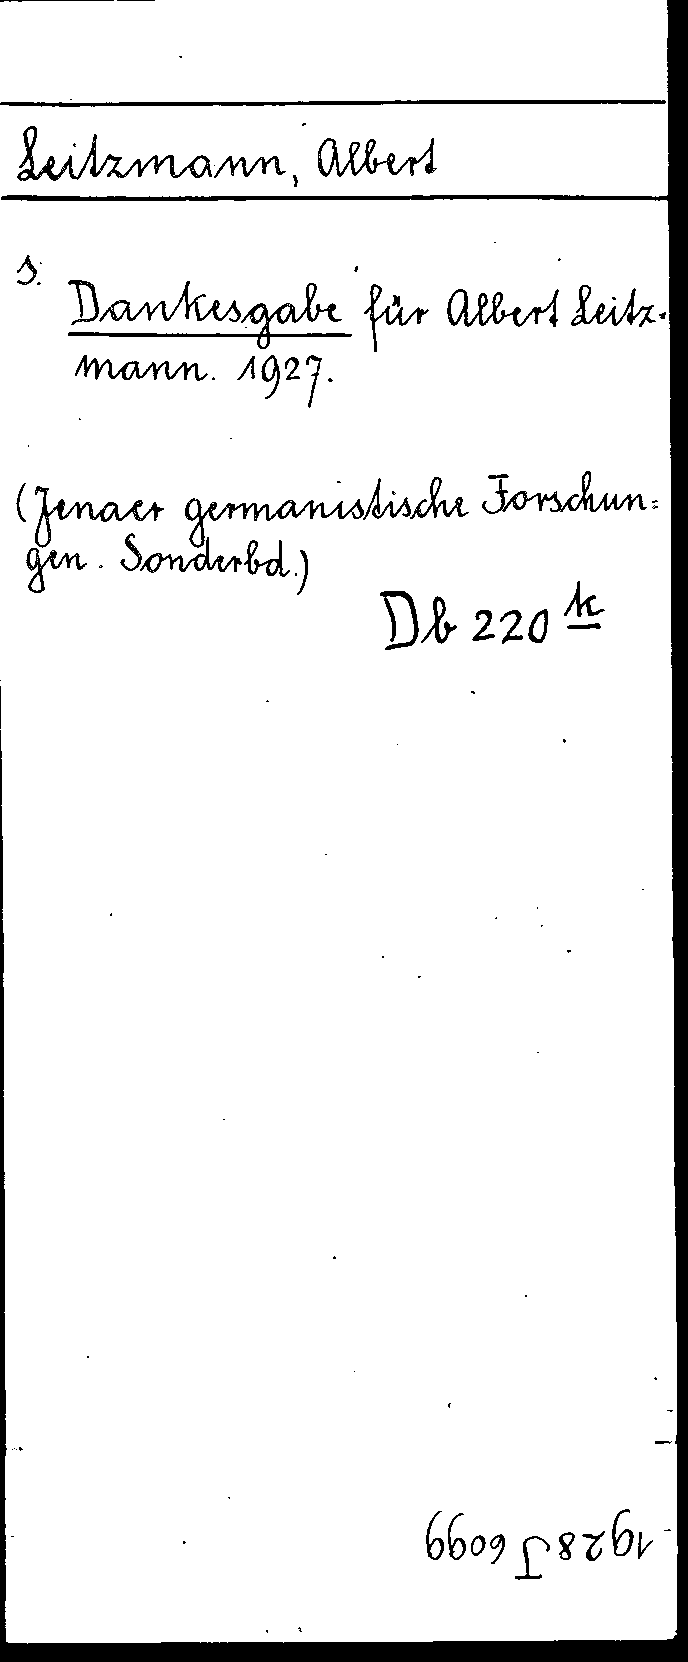 Leitzmann, Albert
s.
Dankesgabe für Albert Leitz-
mann. 1927.
(Jenaer germanistische Forschun=
gen. Sonderbd.)
Db 220 k
1928 J 6099